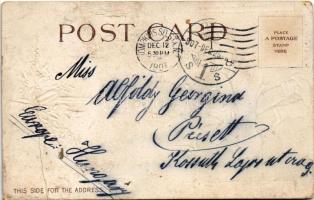 POST CARD
PLACE
A POSTAGE
STAMP
HERE
DEC 12
Miss
Alföldy Georgina
Pécsett
Kossuth Lajos utca
Europe: Hungary
THIS SIDE FOR THE ADDRESS